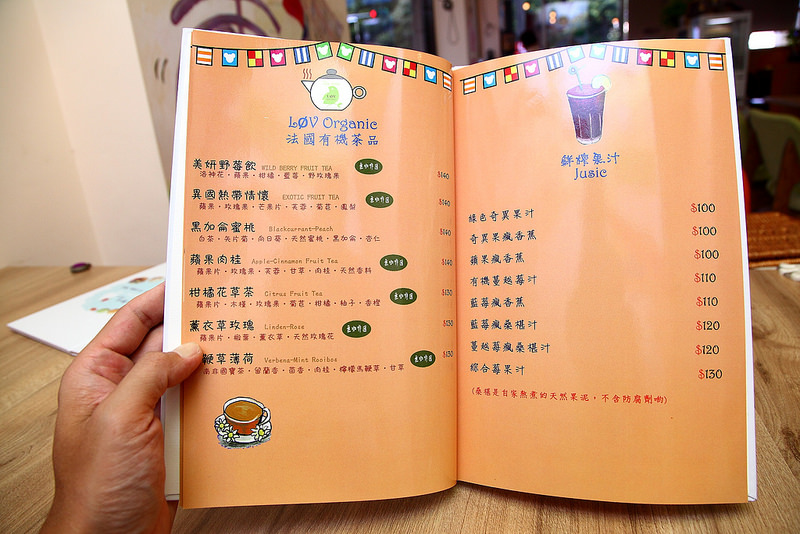 LØV Organic
法國有機茶品
美妍野莓飲 WILD BERRY FRUIT TEA $140
洛神花·蘋果·柑橘·藍莓·野玫瑰果
異國熱帶情懷 EXOTIC FRUIT TEA $140
蘋果·玫瑰果·芒果片·芙蓉·菊苣·鳳梨
黑加侖蜜桃 Blackcurrant-Peach $140
白茶·矢片菊·向日葵·天然蜜桃·黑加侖·杏仁
蘋果肉桂 Apple-Cinnamon Fruit Tea $140
蘋果片·玫瑰果·芙蓉·甘草·肉桂·天然香料
柑橘花草茶 Citrus Fruit Tea $130
蘋果片·木槿·玫瑰果·菊苣·柑橘·柚子·香橙
薰衣草玫瑰 Linden-Rose $130
蘋果片·椴葉·薰衣草·天然玫瑰花
鞭草薄荷 Verbena-Mint Rooibos $130
南非國寶茶·留蘭香·茴香·肉桂·檸檬馬鞭草·甘草
鮮榨果汁
Jusic
綠色奇異果汁 $100
奇異果瘋香蕉 $100
蘋果瘋香蕉 $100
有機蔓越莓汁 $110
藍莓瘋香蕉 $110
藍莓瘋桑椹汁 $120
蔓越莓瘋桑椹汁 $120
綜合莓果汁 $130
(桑椹是自家熬煮的天然果泥，不含防腐劑喲)